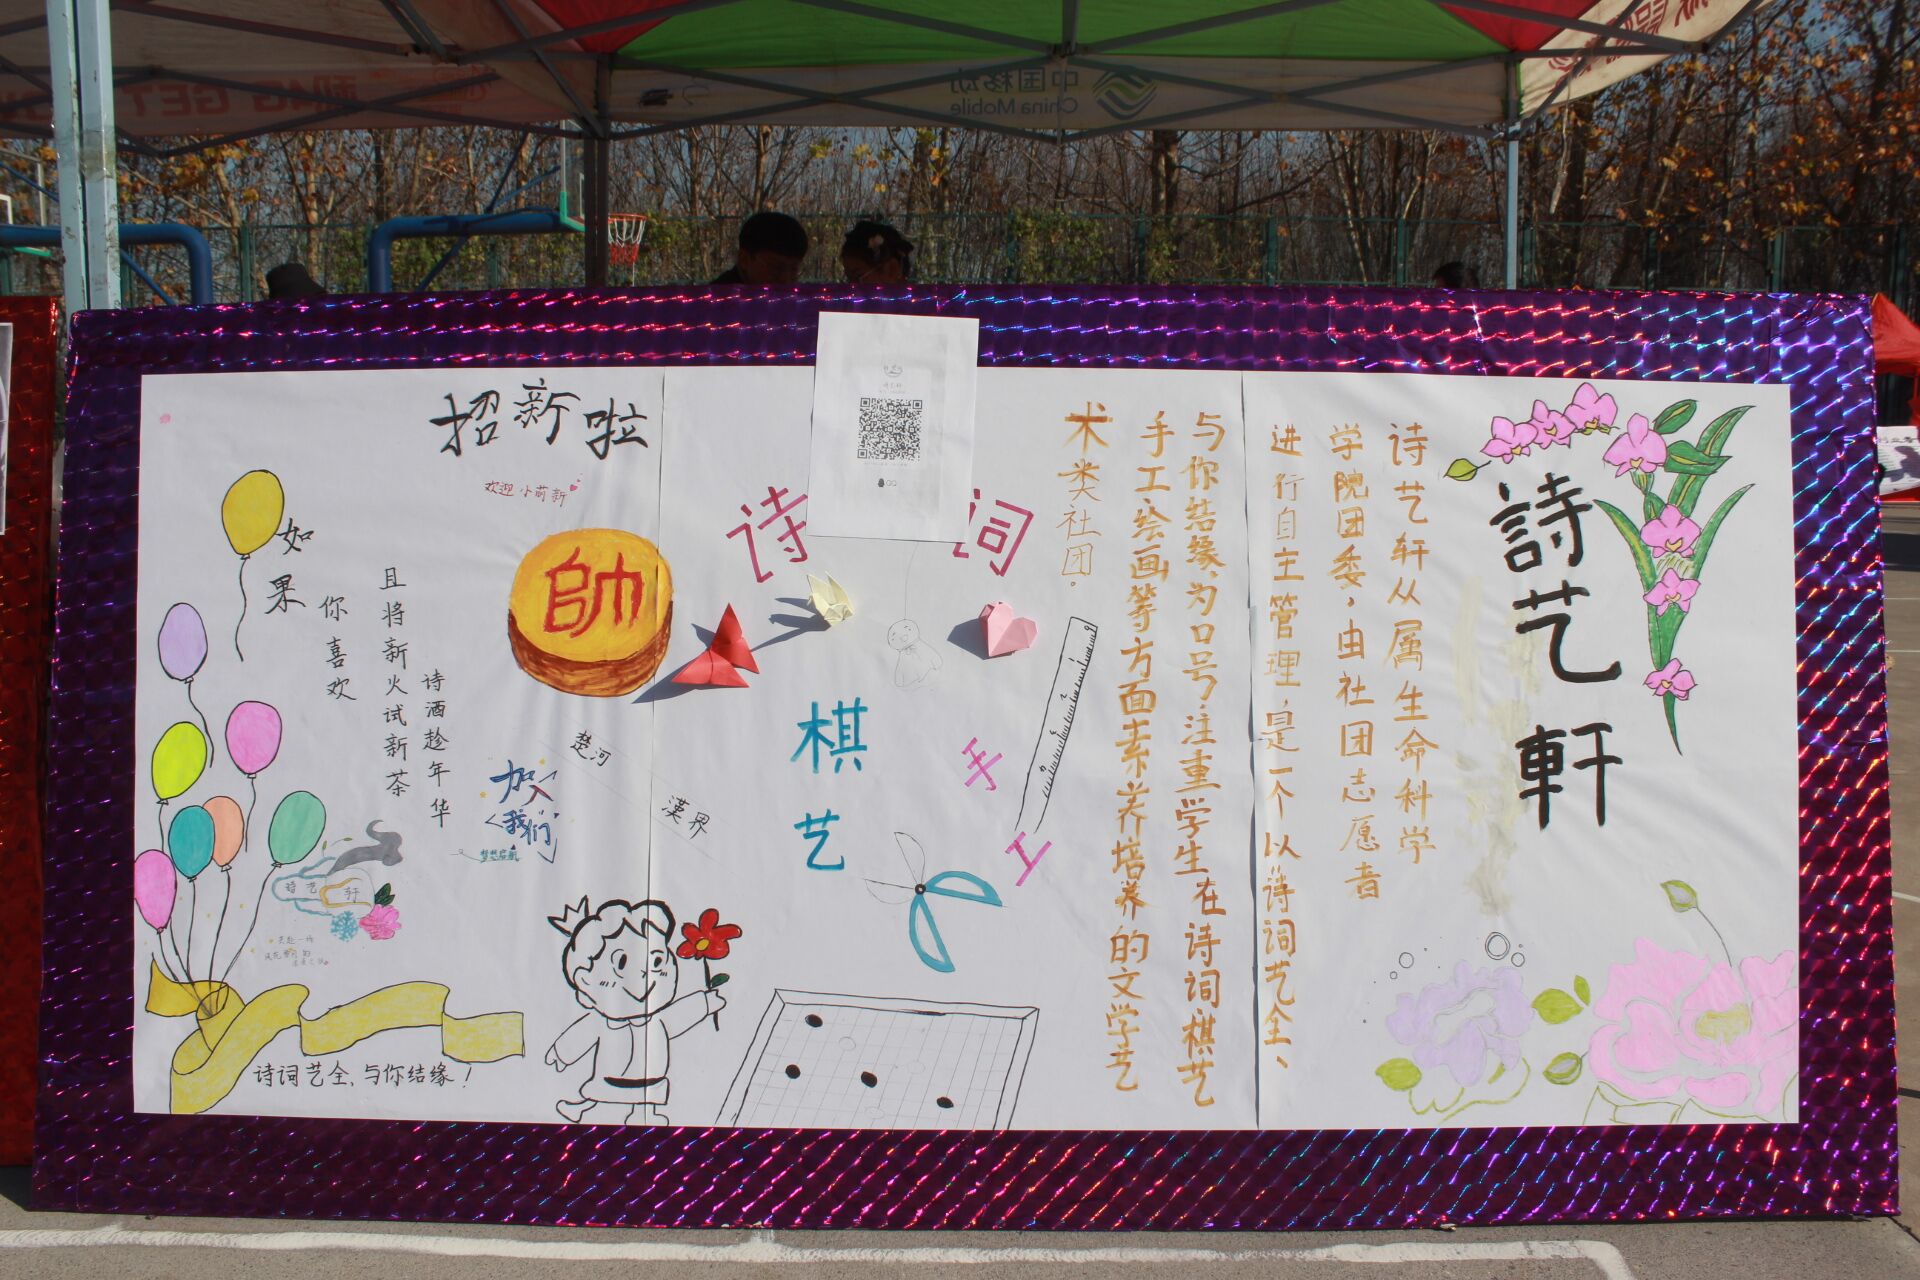 中国移动
China Mobile
招新啦
欢迎小萌新
如果
你喜欢
且将新火试新茶
诗酒趁年华
帥
加入
我们
梦想启航
楚河
漢界
诗艺轩
诗词艺全、与你结缘！
诗词
棋艺
手工
QQ
詩艺軒
诗艺轩从属生命科学
学院团委，由社团志愿者
进行自主管理，是一个以“诗词艺全、
与你结缘”为口号，注重学生在诗词棋艺
手工绘画等方面素养培养的文学艺
术类社团。